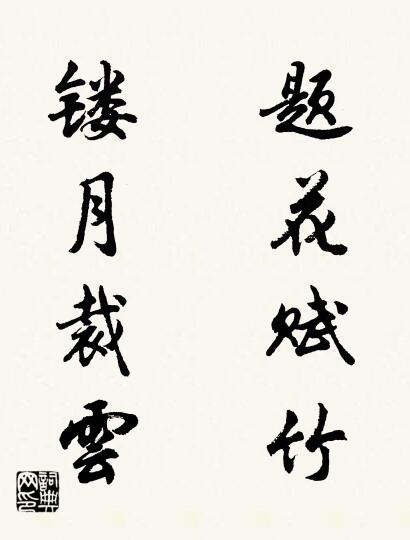 题花赋竹
镂月裁雲
詞典网印